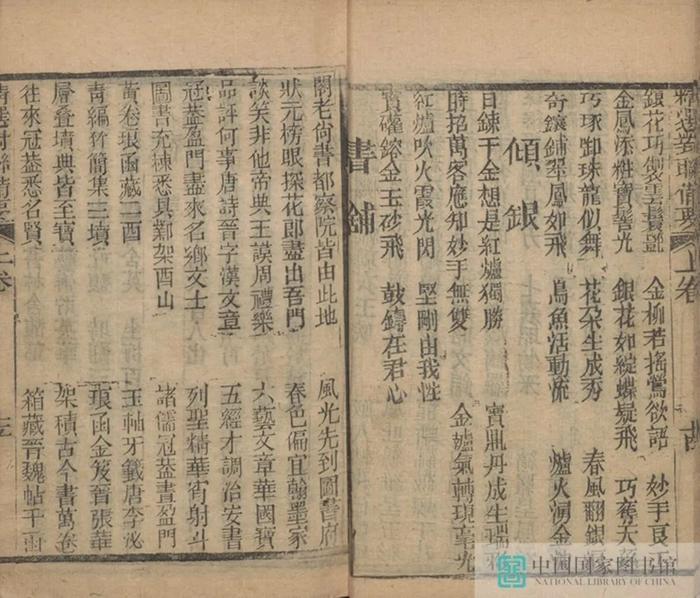 精選對聯備要 上卷
銀花巧製雲鬟艷 金柳若搖鶯欲語 妙手
金鳳添粧寶髻光 銀花如綻蝶疑飛 巧奪天
巧琢卸珠龍似舞 花朵生成秀 春風翻銀
奇鑲鋪翠鳳如飛 鳥魚活動流 爐火湧金
傾銀
日鍊千金想是紅爐獨勝 寶鼎丹成生瑞
時招萬客應知妙手無雙 金爐氣轉現毫光
紅爐吹火霞光閃 堅剛由我性
寶礶鎔金玉砂飛 鼓鑄在君心
書鋪
閣老尚書都察院皆由此地 風光先到圖書府
狀元榜眼探花郎盡出吾門 春色偏宜翰墨家
談笑非他帝典王謨周禮樂 六藝文章華國寶
品評何事唐詩晉字漢文章 五經才調治安書
冠葢盈門盡來名鄉文士 列聖精華宵射斗
圖書充棟悉具鄴架酉山 諸儒冠葢晝盈門
黃卷琅函藏二酉 玉軸牙籤唐李泌
青編竹簡集三墳 琅函金笈晉張華
層叠墳典皆至寶 架積古今書萬卷
往來冠葢悉名賢 箱藏晉魏帖千函
精選對聯備要 上卷
中国国家图书馆
NATIONAL LIBRARY OF CHINA